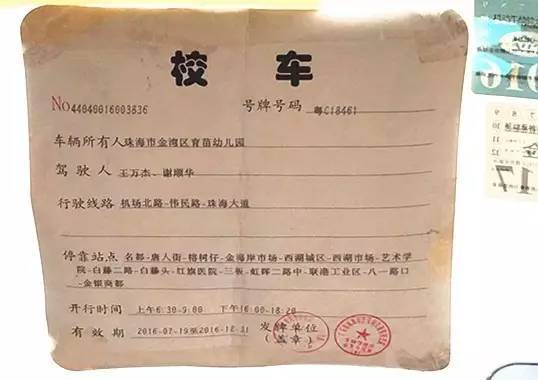 校车
No44040016003636 号牌号码 粤C18461
车辆所有人 珠海市金湾区育苗幼儿园
驾驶人 王万杰-谢顺华
行驶线路 机场北路-伟民路-珠海大道
停靠站点 名都-唐人街-榕树仔-金海岸市场-西湖城区-西湖市场-艺术学
院-白藤二路-白藤头-红旗医院-三板-虹晖二路中-联港工业区-八一路口
-金银商都
开行时间 上午6:30-9:00 下午16:00-18:20
有效期 2016-07-19至2016-12-31 发牌单位
(盖章)
17